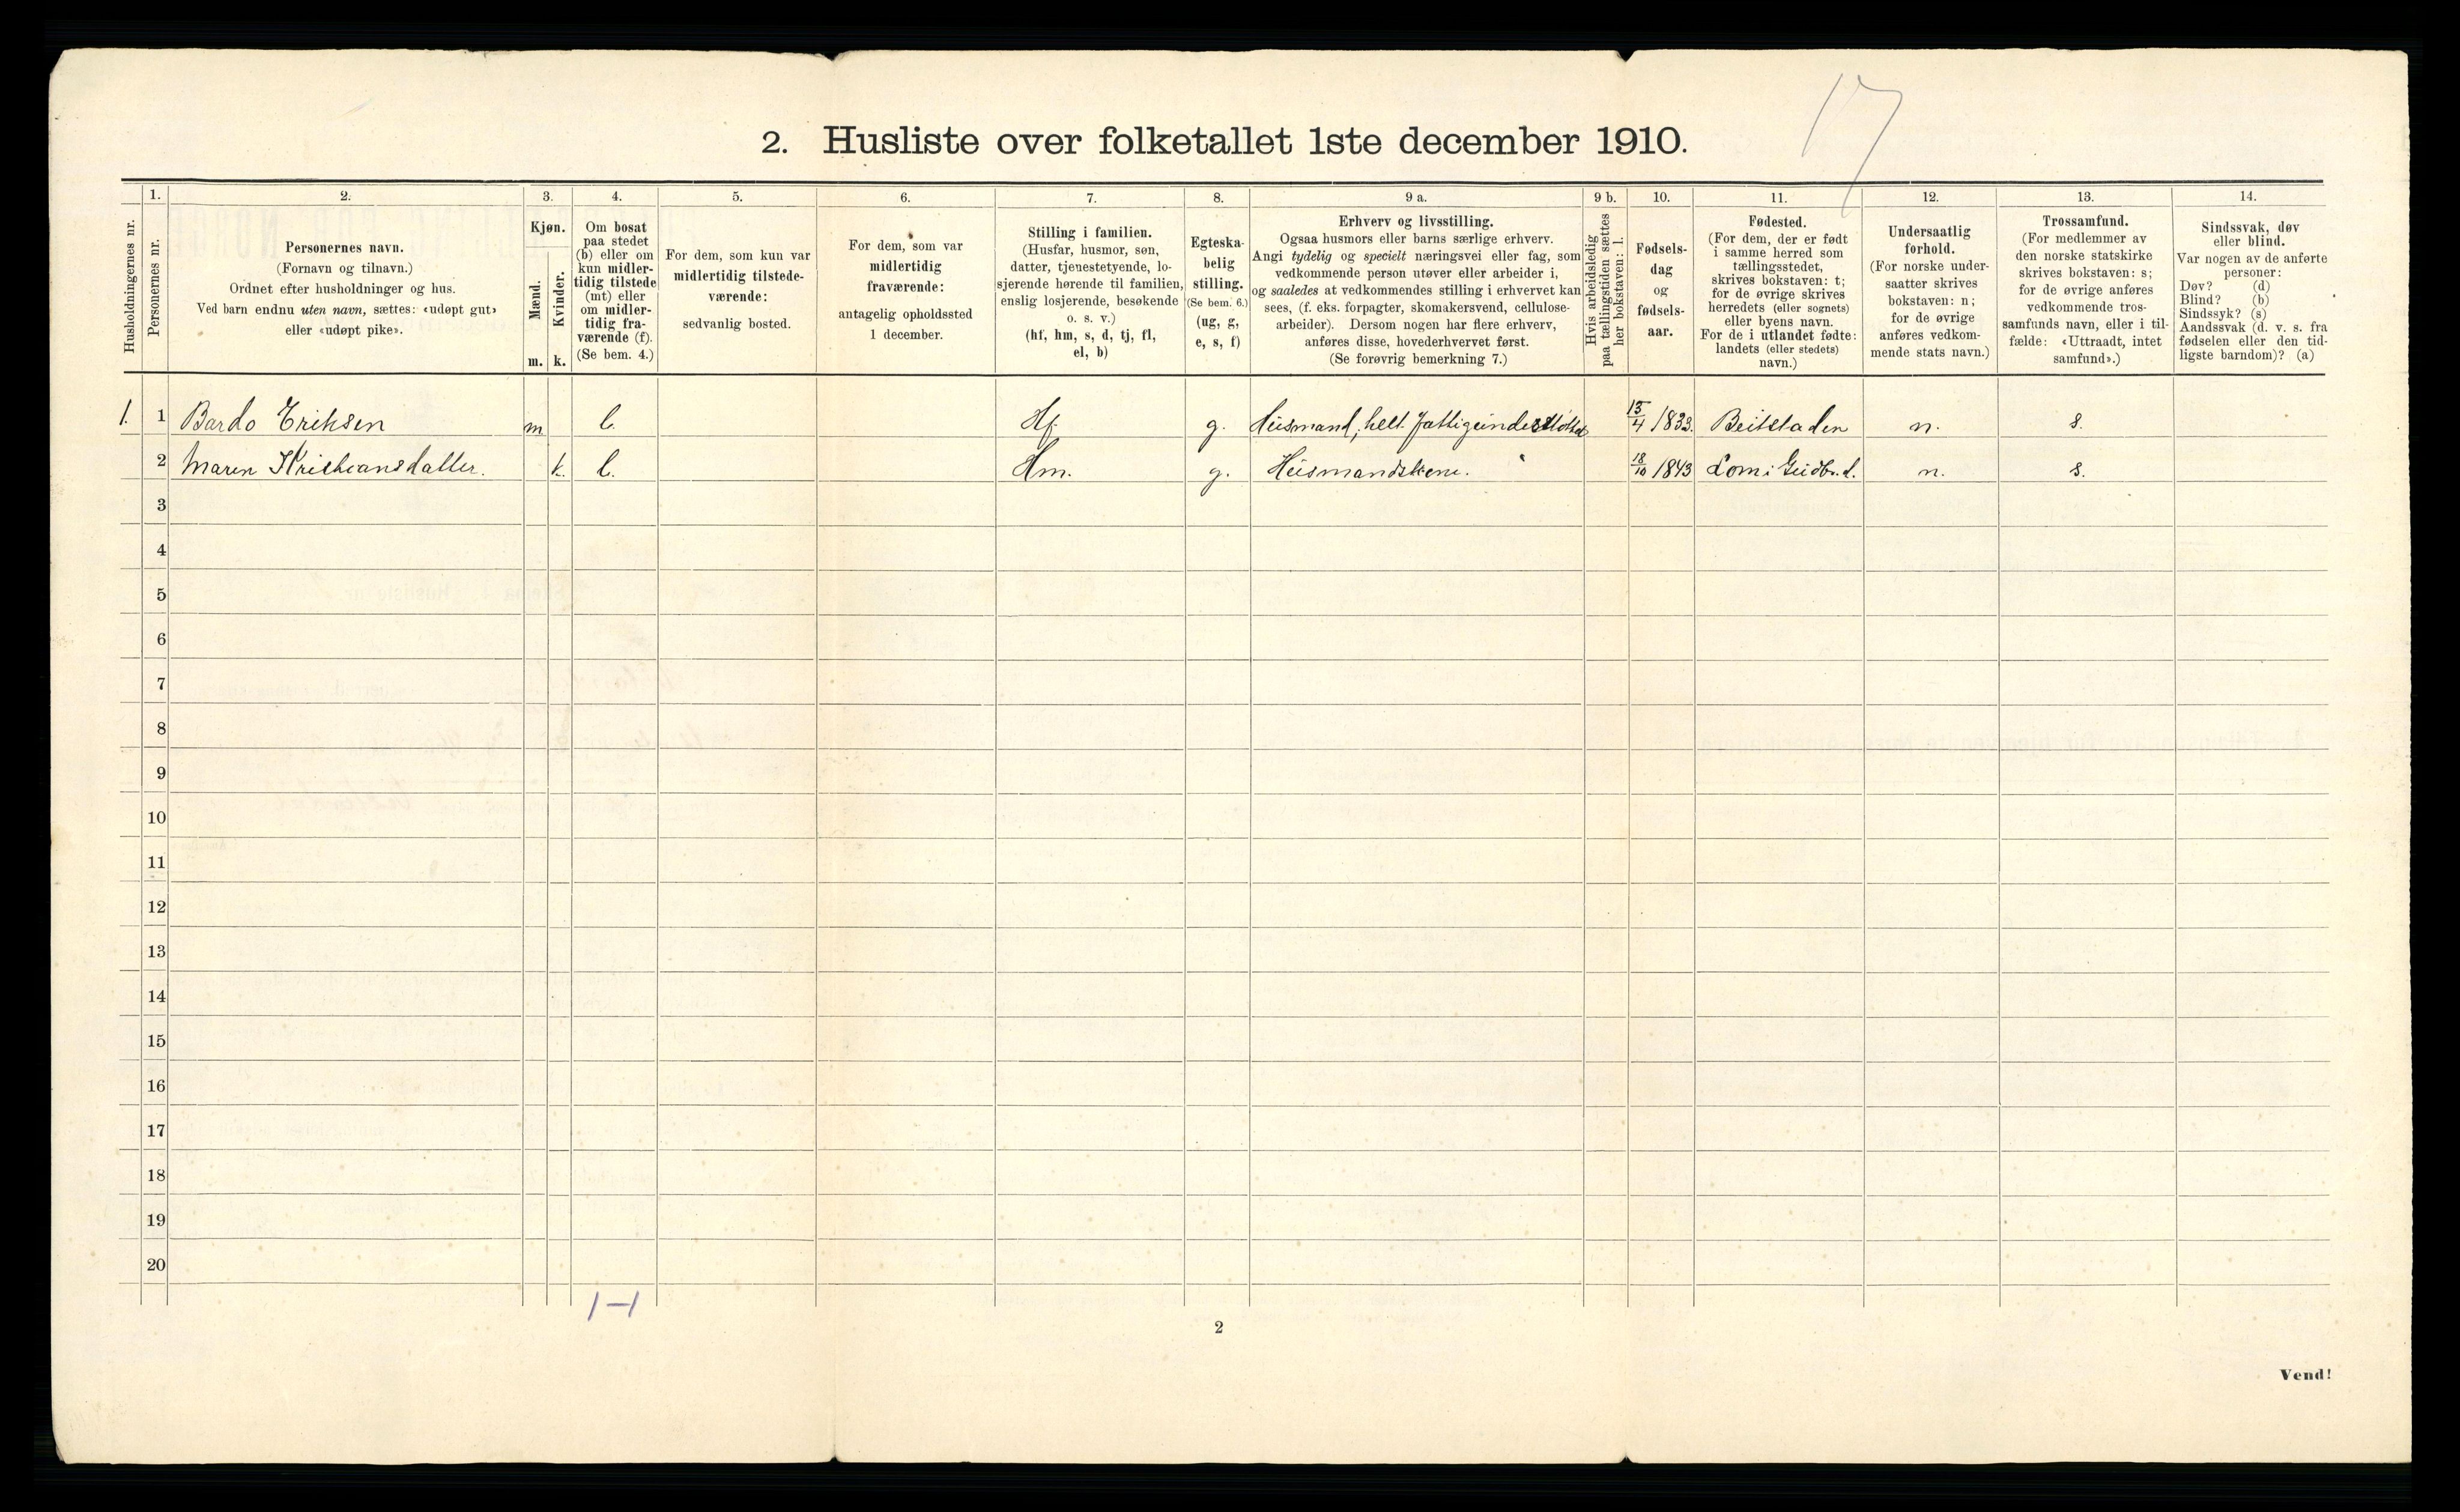 17
2. Husliste over folketallet 1ste december 1910.
Husholdningernes nr.
1. Personernes nr.
2. Personernes navn.
(Fornavn og tilnavn.)
Ordnet efter husholdninger og hus.
Ved barn endnu uten navn, sættes: «udøpt gut»
eller «udøpt pike».
3. Kjøn.
Mænd. m.
Kvinder. k.
4. Om bosat
paa stedet
(b) eller om
kun midler-
tidig tilstede
(mt) eller
om midler-
tidig fra-
værende (f).
(Se bem. 4.)
5. For dem, som kun var
midlertidig tilstede-
værende:
sedvanlig bosted.
6. For dem, som var
midlertidig
fraværende:
antagelig opholdssted
1 december.
7. Stilling i familien.
(Husfar, husmor, søn,
datter, tjenestetyende, lo-
sjerende hørende til familien,
enslig losjerende, besøkende
o. s. v.)
(hf, hm, s, d, tj, fl,
el, b)
8. Egteska-
belig
stilling.
(Se bem. 6.)
(ug, g,
e, s, f)
9 a. Erhverv og livsstilling.
Ogsaa husmors eller barns særlige erhverv.
Angi tydelig og specielt næringsvei eller fag, som
vedkommende person utøver eller arbeider i,
og saaledes at vedkommendes stilling i erhvervet kan
sees, (f. eks. forpagter, skomakersvend, cellulose-
arbeider). Dersom nogen har flere erhverv,
anføres disse, hovederhvervet først.
(Se forøvrig bemerkning 7.)
9 b. Hvis arbeidsledig
paa tællingstiden sættes
her bokstaven: l.
10. Fødsels-
dag
og
fødsels-
aar.
11. Fødested.
(For dem, der er født
i samme herred som
tællingsstedet,
skrives bokstaven: t;
for de øvrige skrives
herredets (eller sognets)
eller byens navn.
For de i utlandet fødte:
landets (eller stedets)
navn.)
12. Undersaatlig
forhold.
(For norske under-
saatter skrives
bokstaven: n;
for de øvrige
anføres vedkom-
mende stats navn.)
13. Trossamfund.
(For medlemmer av
den norske statskirke
skrives bokstaven: s;
for de øvrige anføres
vedkommende tros-
samfunds navn, eller i til-
fælde: «Uttraadt, intet
samfund».)
14. Sindssvak, døv
eller blind.
Var nogen av de anførte
personer:
Døv? (d)
Blind? (b)
Sindssyk? (s)
Aandssvak (d. v. s. fra
fødselen eller den tid-
ligste barndom)? (a)
1. 1 Bardo Eriksen m b. Hf. g. Husmand, helt fattigunderstøttet 13/4 1833. Beitstaden n. s.
2 Maren Kristiansdatter. k. b. Hm. g. Husmandskone. 18/10 1843 Lom i Gudbr.d. n. s.
3
4
5
6
7
8
9
10
11
12
13
14
15
16
17
18
19
20
1-1
2
Vend!